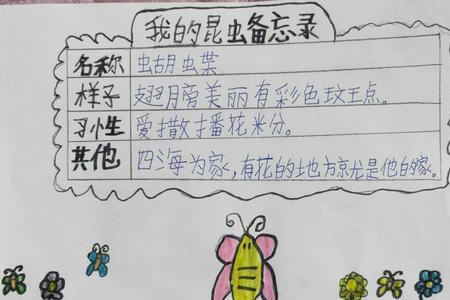 我的昆虫备忘录
名称 蝴蝶
样子 翅膀美丽有彩色斑点。
习性 爱撒播花粉。
其他 四海为家,有花的地方就是他的家。